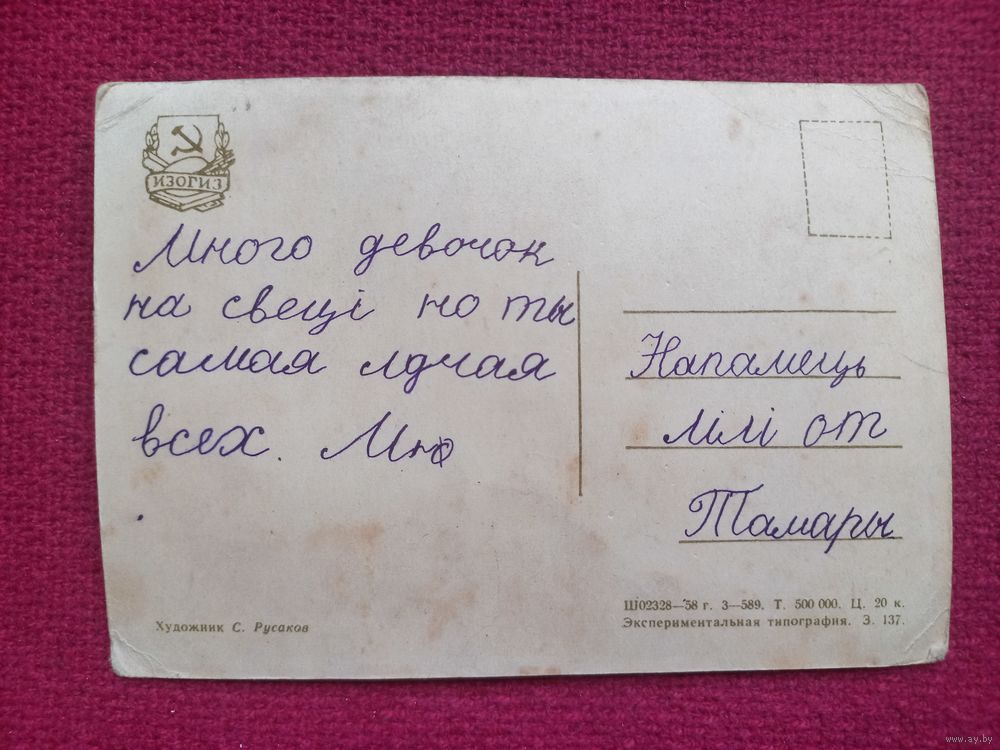 ИЗОГИЗ
Много девочок
на свеці но ты
самая лдчая
всех. Мно
.
Напамець
лілі от
Тамары
Художник С. Русаков
Ш02328—58 г. 3—589. Т. 500 000. Ц. 20 к.
Экспериментальная типография. З. 137.
www.ay.by